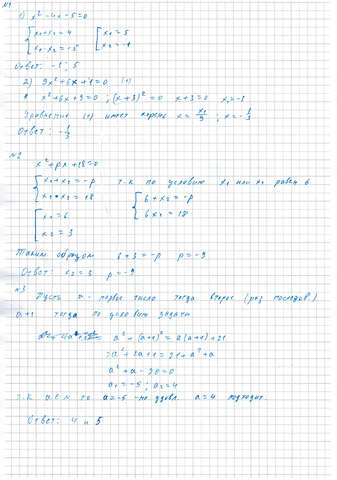 №1
1) x² - 4x - 5 = 0
{ x₁+x₂ = 4 [ x₁ = 5
x₁·x₂ = -5 x₂ = -1
Ответ: -1; 5
2) 9x² + 6x + 1 = 0 (1)
x² + 6x + 9 = 0; (x+3)² = 0 x+3 = 0 x₁ = -3
Уравнение (1) имеет корень x = x₁/9; x = -1/3
Ответ: -1/3
№2
x² + px + 18 = 0
{ x₁+x₂ = -p т.к по условию x₁ или x₂ равен 6
x₁·x₂ = 18 { 6 + x₂ = -p
[ x₁ = 6 6x₂ = 18
x₂ = 3
Таким образом 6 + 3 = -p p = -9
Ответ: x₂ = 3 p = -9
№3 Пусть a - первое число тогда второе (раз последов.)
a+1 тогда по условию задачи
a² + (a+1)² = a(a+1) + 21
= a² + 2a + 1 = 21 + a² + a
a² + a - 20 = 0
a₁ = -5; a₂ = 4
т.к a∈N то a = -5 - не удовл. a = 4 подходит.
Ответ: 4 и 5